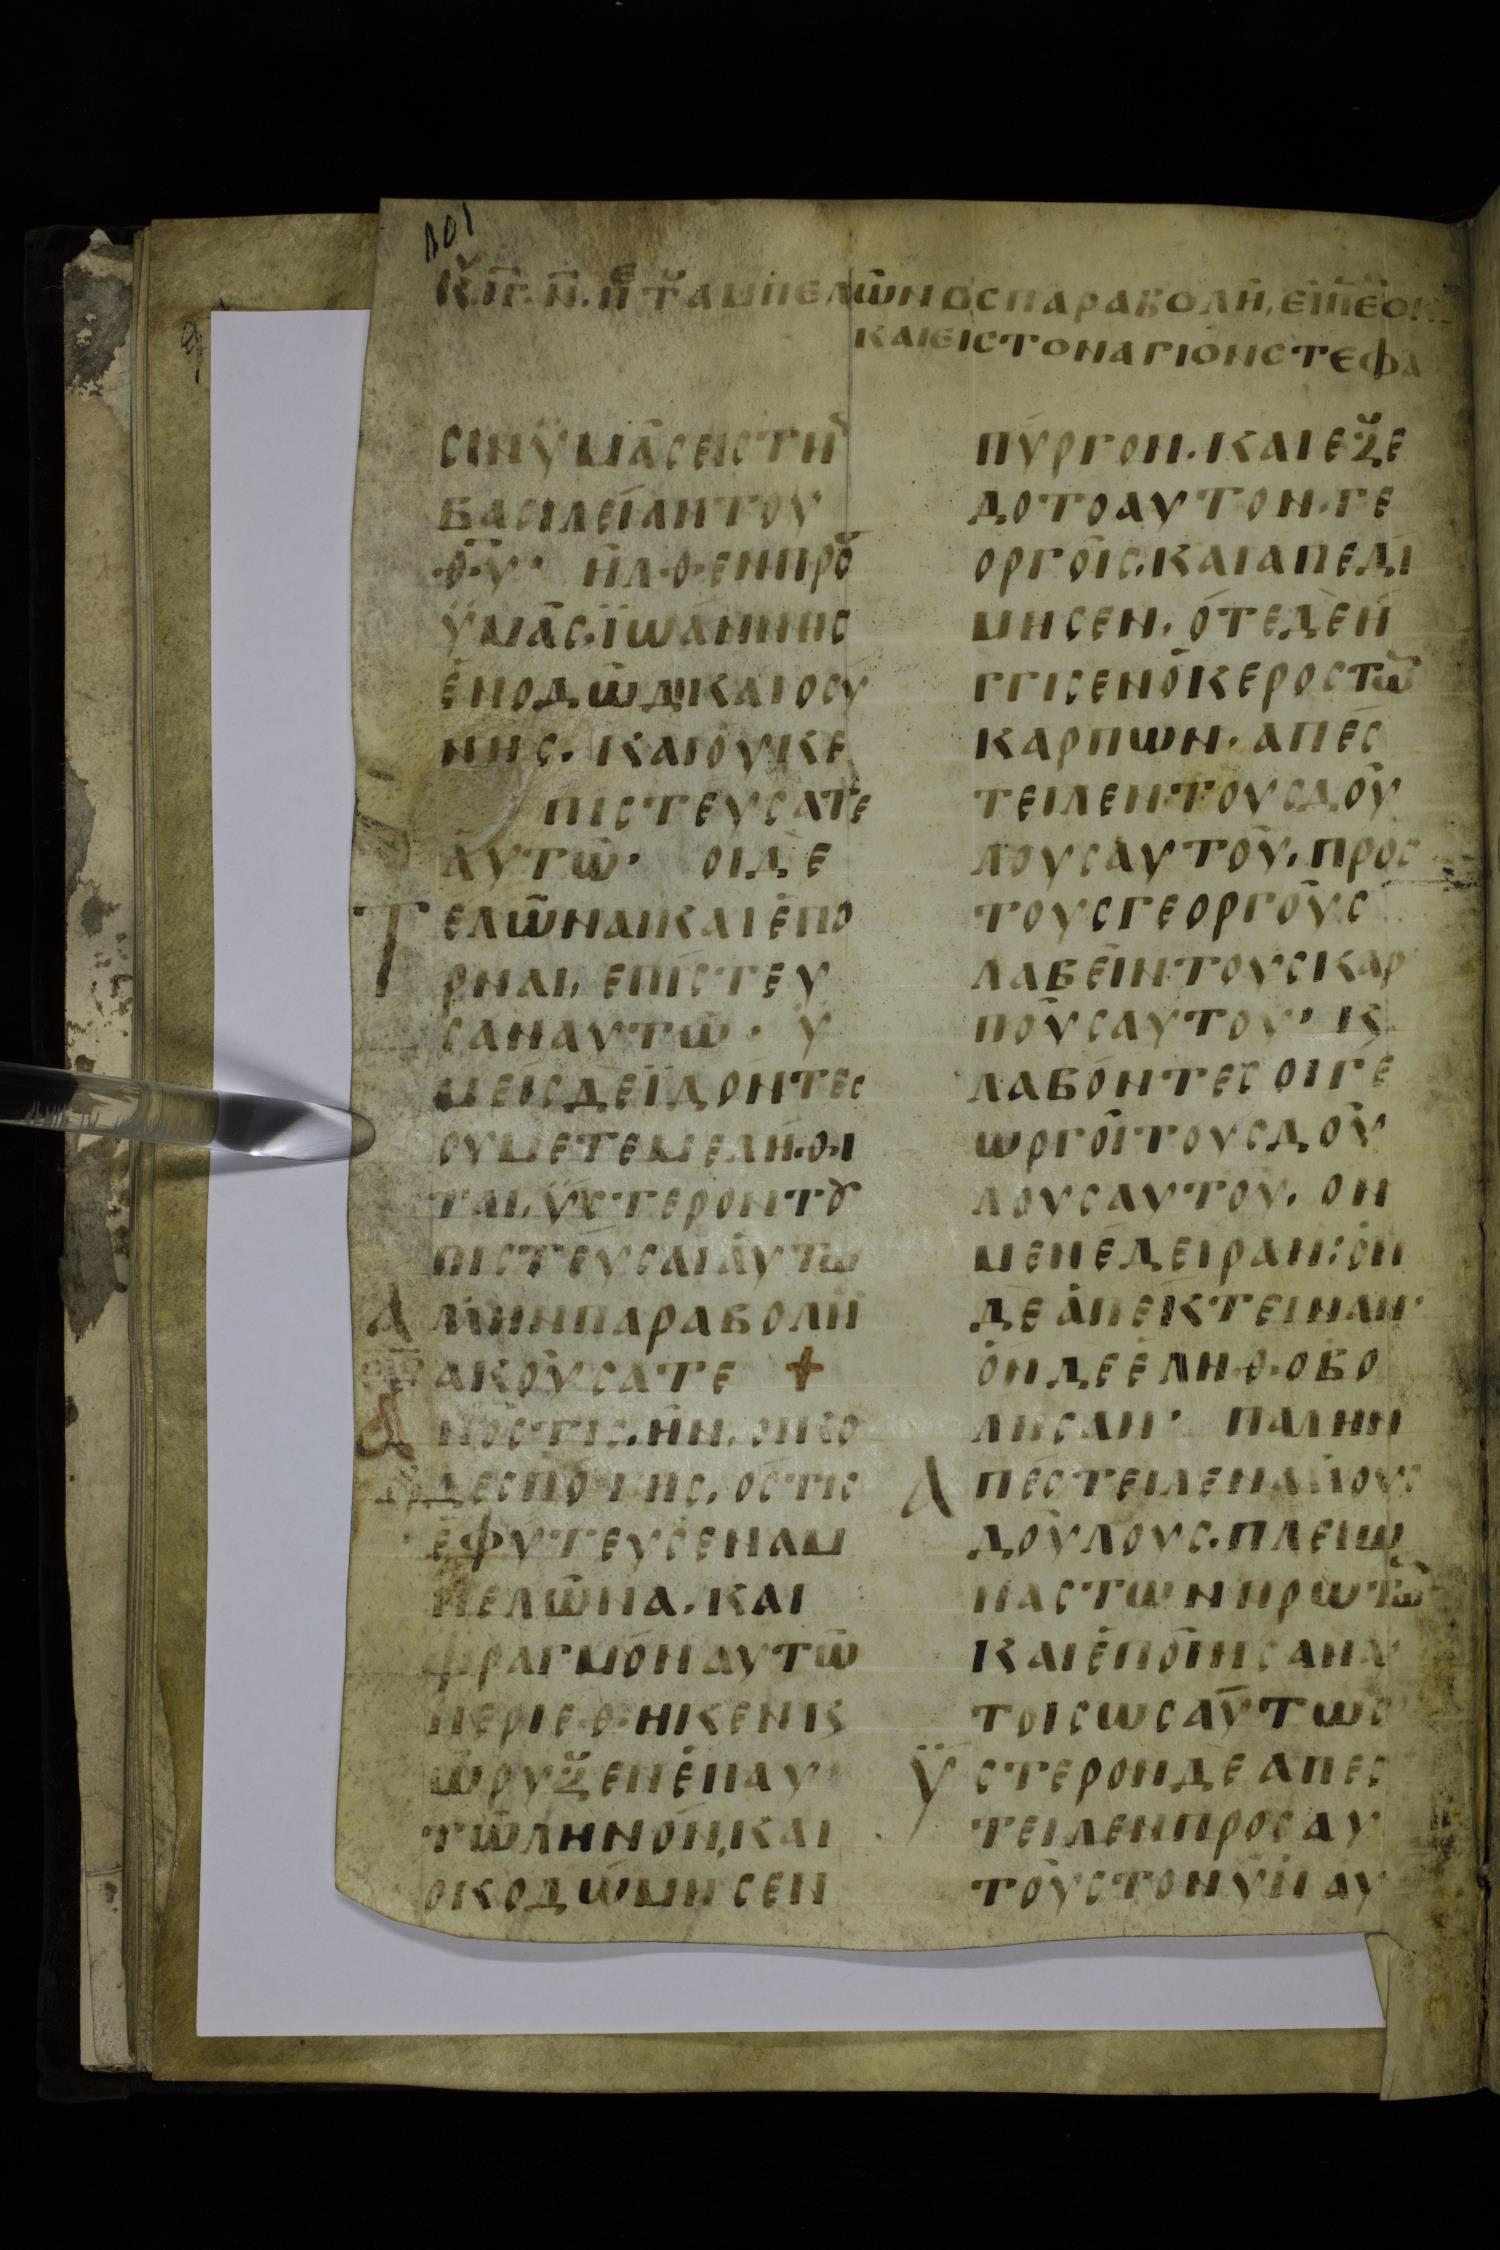 101
Κ̅. ΙΓ. Ν̅. Π̅ ΤΑΜΠΕΛΩΝΟΣ ΠΑΡΑΒΟΛΗ, ΕΙΠΕΟ
ΚΑΙΕΙΣΤΟΝΑΓΙΟΝΣΤΕΦΑ
ΣΙΝΫΜΑΣΕΙΣΤΗ
ΒΑΣΙΛΕΙΑΝΤΟΥ
Θ̅Υ̅· ΗΛΘΕΝΠΡΟ
ΫΜΑΣ·ΪΩΑΝΝΗΣ
ΕΝΟΔΩΔΙΚΑΙΟΣΥ
ΝΗΣ. ΚΑΙΟΥΚΕ
ΠΙΣΤΕΥΣΑΤΕ
ΑΥΤΩ· ΟΙΔΕ
ΤΕΛΩΝΑΙΚΑΙΕΠΟ
ΡΝΑΙ, ΕΠΙΣΤΕΥ
ΣΑΝΑΥΤΩ· Υ
ΜΕΙΣΔΕΪΔΟΝΤΕΣ
ΟΥΜΕΤΕΜΕΛΗΘΙ
ΤΑΙ, ΫΣΤΕΡΟΝΤȢ
ΠΙΣΤΕΥΣΑΙΑΥΤΩ
ΑΛΛΗΝΠΑΡΑΒΟΛΗ
ΑΚΟΥΣΑΤΕ +
ΑΝΟΣΤΙΣ. ΗΝ. ΟΙΚΟ
ΔΕΣΠΟΤΗΣ, ΟΣΤΙΣ
ΕΦΥΤΕΥΣΕΝΑΜ
ΠΕΛΩΝΑ. ΚΑΙ
ΦΡΑΓΜΟΝΑΥΤΩ
ΠΕΡΙΕΘΗΚΕΝΚ
ΩΡΥΞΕΝΕΝΑΥ
ΤΩΛΗΝΟΝ, ΚΑΙ
ΟΚΟΔΩΜΗΣΕΝ
ΠΥΡΓΟΝ. ΚΑΙΕΞΕ
ΔΟΤΟΑΥΤΟΝ·ΓΕ
ΟΡΓΟΙΣ. ΚΑΙΑΠΕΔΙ
ΜΗΣΕΝ. ΟΤΕΔΕΗ
ΓΓΙΣΕΝΟΚΕΡΟΣΤΩ
ΚΑΡΠΩΝ· ΑΠΕΣ
ΤΕΙΛΕΝΤΟΥΣΔΟΥ
ΛΟΥΣΑΥΤΟΥ. ΠΡΟΣ
ΤΟΥΣΓΕΟΡΓΟΥΣ
ΛΑΒΕΙΝΤΟΥΣΚΑΡ
ΠΟΥΣΑΥΤΟΥ· Κ
ΛΑΒΟΝΤΕΣΟΙΓΕ
ΩΡΓΟΙΤΟΥΣΔΟΥ
ΛΟΥΣΑΥΤΟΥ. ΟΝ
ΜΕΝΕΔΕΙΡΑΝ: ΟΝ
ΔΕΑΠΕΚΤΕΙΝΑΝ·
ΟΝΔΕΕΛΗΘΟΒΟ
ΛΗΣΑΝ· ΠΑΛΗΝ
ΑΠΕΣΤΕΙΛΕΝΑΛΛΟΥΣ
ΔΟΥΛΟΥΣ. ΠΛΕΙΩ
ΝΑΣΤΩΝΠΡΩΤΩ
ΚΑΙΕΠΟΙΗΣΑΝΑΥ
ΤΟΙΣΩΣΑΥΤΩΣ
ΫΣΤΕΡΟΝΔΕΑΠΕΣ
ΤΕΙΛΕΝΠΡΟΣΑΥ
ΤΟΥΣΤΟΝΥΝΑΥ